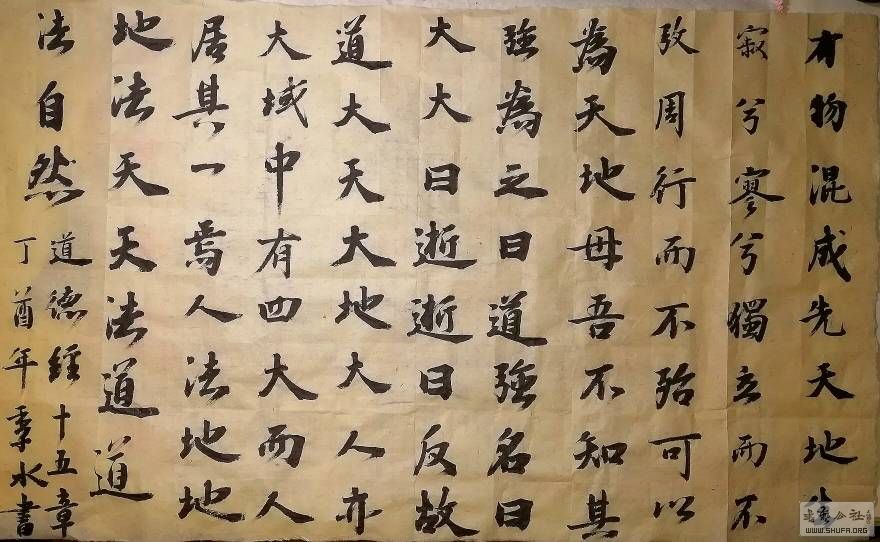 有物混成先天地生
寂兮寥兮獨立而不
改周行而不殆可以
為天地母吾不知其
強為之曰道強名曰
大大曰逝逝曰反故
道大天大地大人亦
大域中有四大而人
居其一焉人法地地
地法天天法道道
法自然
道德經十五章
丁酉年季水書
WWW.SHUFA.ORG